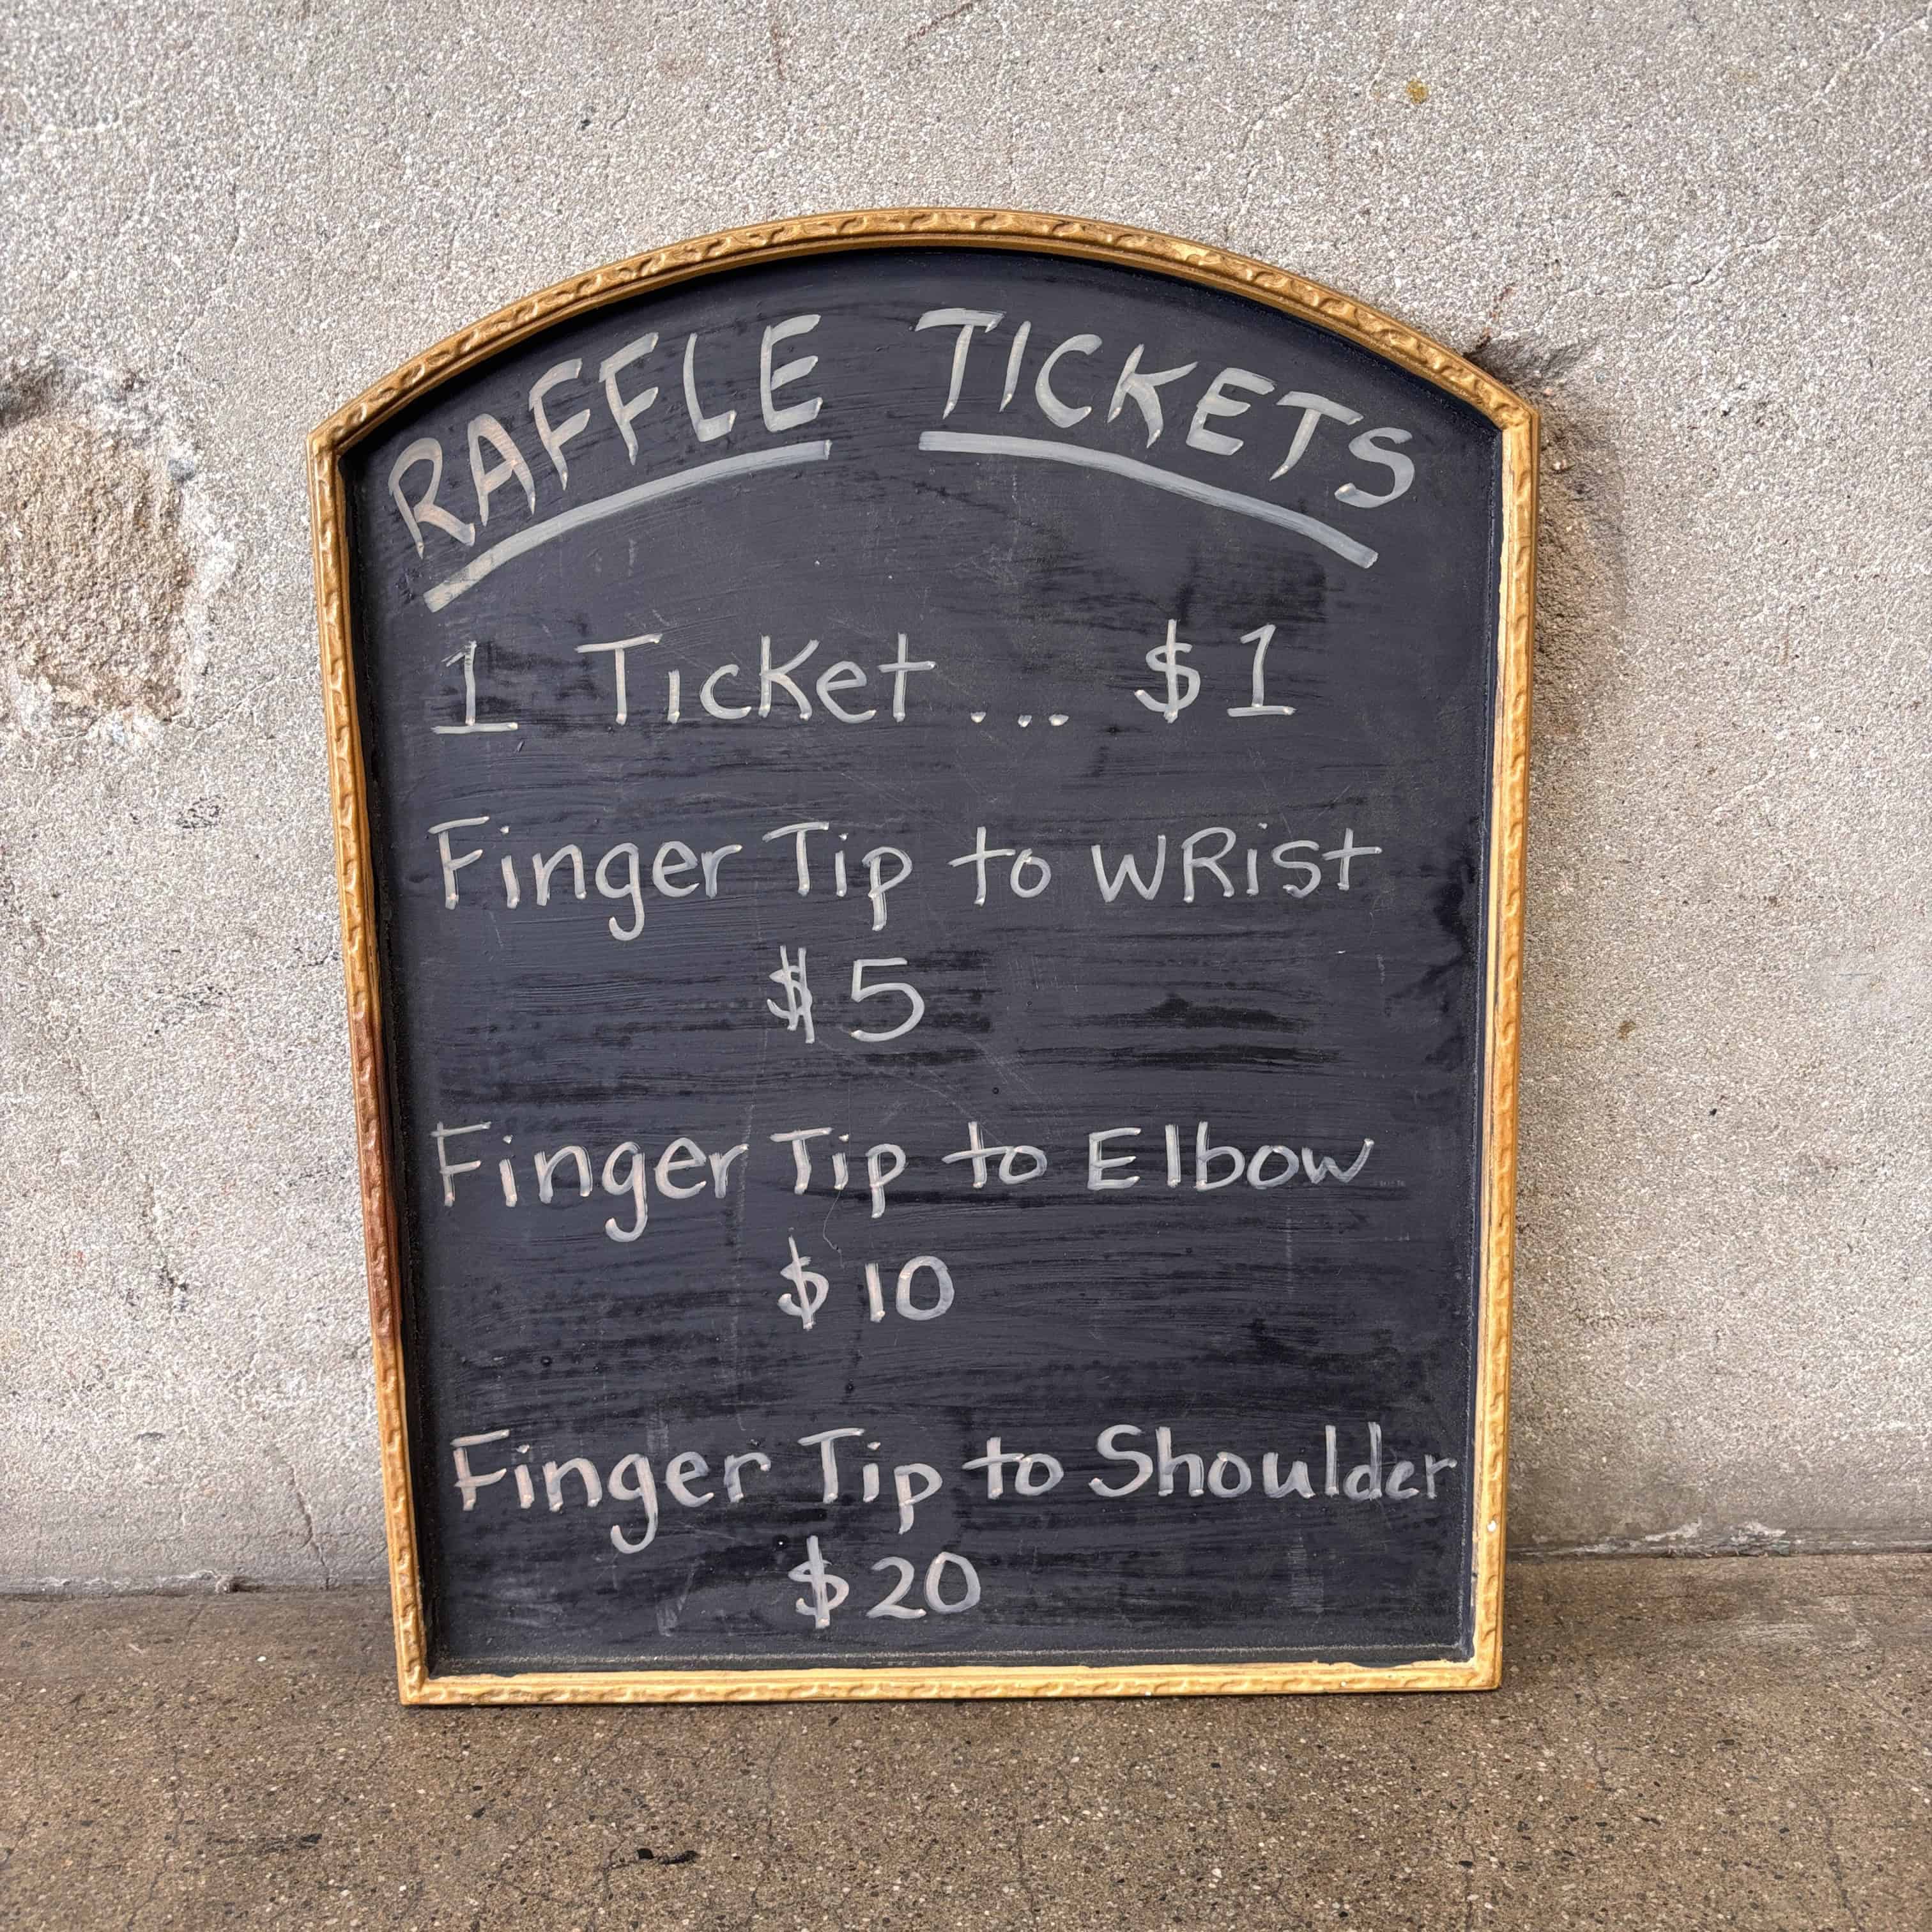 RAFFLE TICKETS
1 Ticket... $1
Finger Tip to WRist
$5
Finger Tip to Elbow
$10
Finger Tip to Shoulder
$20